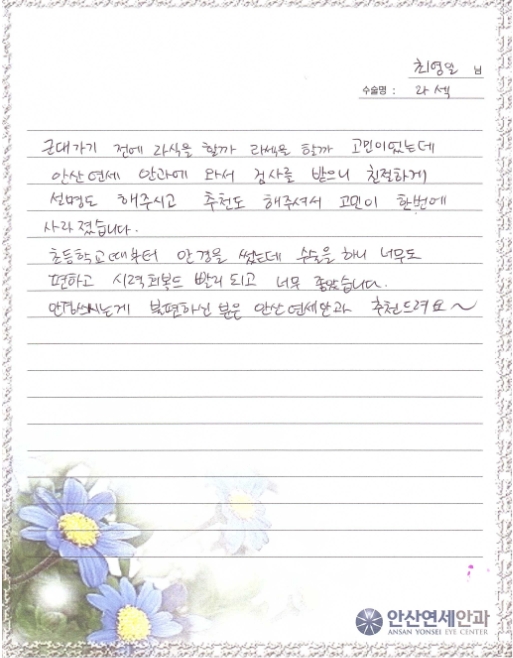 최영일 님
수술명 : 라섹
군대가기 전에 라식을 할까 라섹을 할까 고민이있는데
안산연세 안과에 와서 검사를 받으니 친절하게
설명도 해주시고 추천도 해주셔서 고민이 한번에
사라졌습니다.
초등학교때부터 안경을 썼는데 수술을 하니 너무도
편하고 시력회복도 빨리되고 너무 좋았습니다.
안경쓰시는게 불편하신 분은 안산연세안과 추천드려요~
안산연세안과
ANSAN YONSEI EYE CENTER